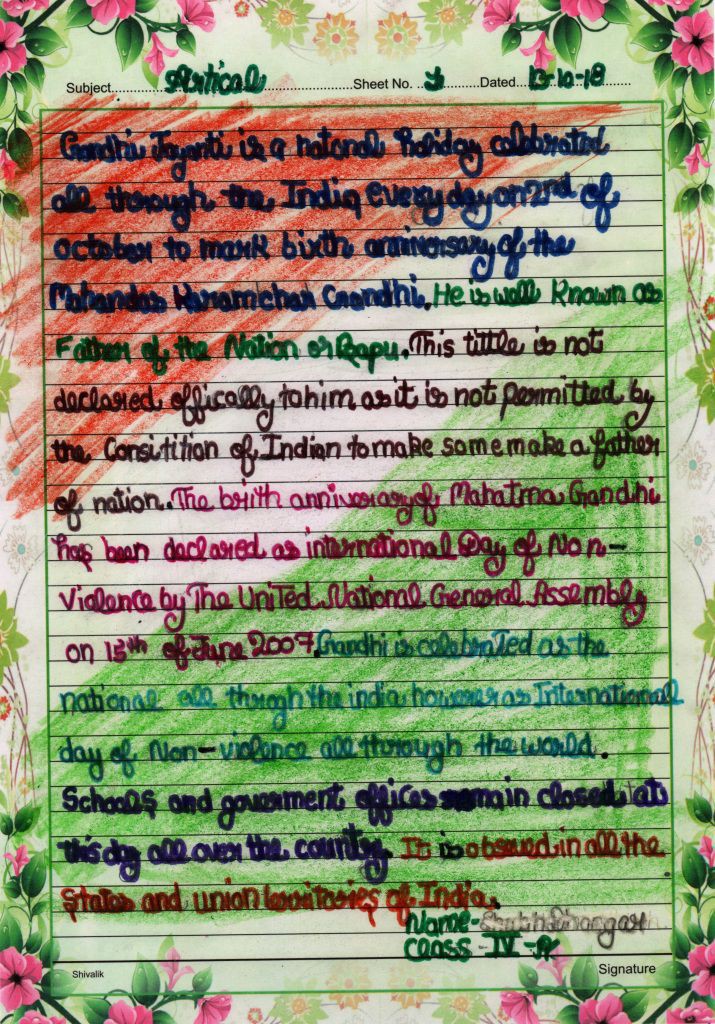 Subject Artical Sheet No. 1 Dated 13-10-18
Gandhi Jayanti is a national holiday celebrated
all through the India every day on 2nd of
October to mark birth anniversary of the
Mahandas Karamchar Gandhi. He is well known as
Father of the Nation or Bapu. This tittle is not
declared offically to him as it is not permitted by
the Consitition of Indian to make some make a father
of nation. The birith anniverary of Mahatma Gandhi
has been declared as international Day of Non-
Violence by The United National General Assembly
on 15th of June 2007. Gandhi is celebrated as the
national all throgh the india however as International
day of Non-violence all through the world.
Schools and goverment offices remain closed at
this day all over the country. It is obserued in all the
States and union territories of India.
Name-
Class-IV-A
Shivalik Signature